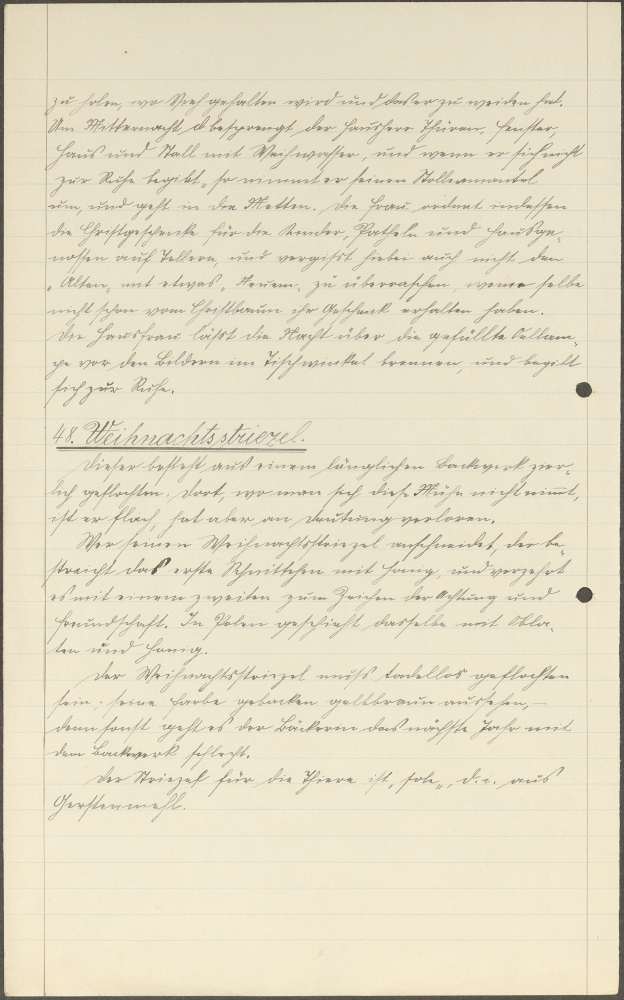 zu holen, wo Vieh gehalten wird und das er zu weiden hat.
Um Mitternacht besprengt der Hausherr Thüren, Fenster,
Haus und Stall mit Weihwasser, und wenn er sich nicht
zur Ruhe begibt, so nimmt er seinen
um, und geht in die Metten. Die Frau ordnet indessen
die Christgeschenke für die Kinder, Patheln und Hausge„
nossen auf Tellern, und vergisst hiebei auch nicht den
„Alten„ mit etwas „Neuem„ zu überraschen, wenn selbe
nicht schon vom Christbaum ihr Geschenk erhalten haben.
Die Hausfrau lässt die Nacht über die gefüllte Öllam„
pe vor den Bildern im Tischwinkel brennen, und begibt
sich zur Ruhe.
48. Weihnachtsstriezel.
Dieser besteht aus einem länglichen Backwerk zier„
lich geflochten. Dort, wo man sich diese Mühe nicht nimmt,
ist er flach, hat aber an Deutung verloren.
Wer seinen Weihnachtsstriezel anschneidet, der be„
streicht das erste Schnittchen mit Honig, und verzehrt
es mit einem zweiten zum Zeichen der Achtung und
Freundschaft. In Polen geschieht dasselbe mit Obla„
ten und Honig.
Der Weihnachtsstriezel muss tadellos geflochten
sein, seine Farbe gebacken gelbbraun aussehen, –
denn sonst geht es der Bäckerin das nächste Jahr mit
dem Backwerk schlecht.
Der Striezel für die Thiere ist d. i. aus
Gerstenmehl.